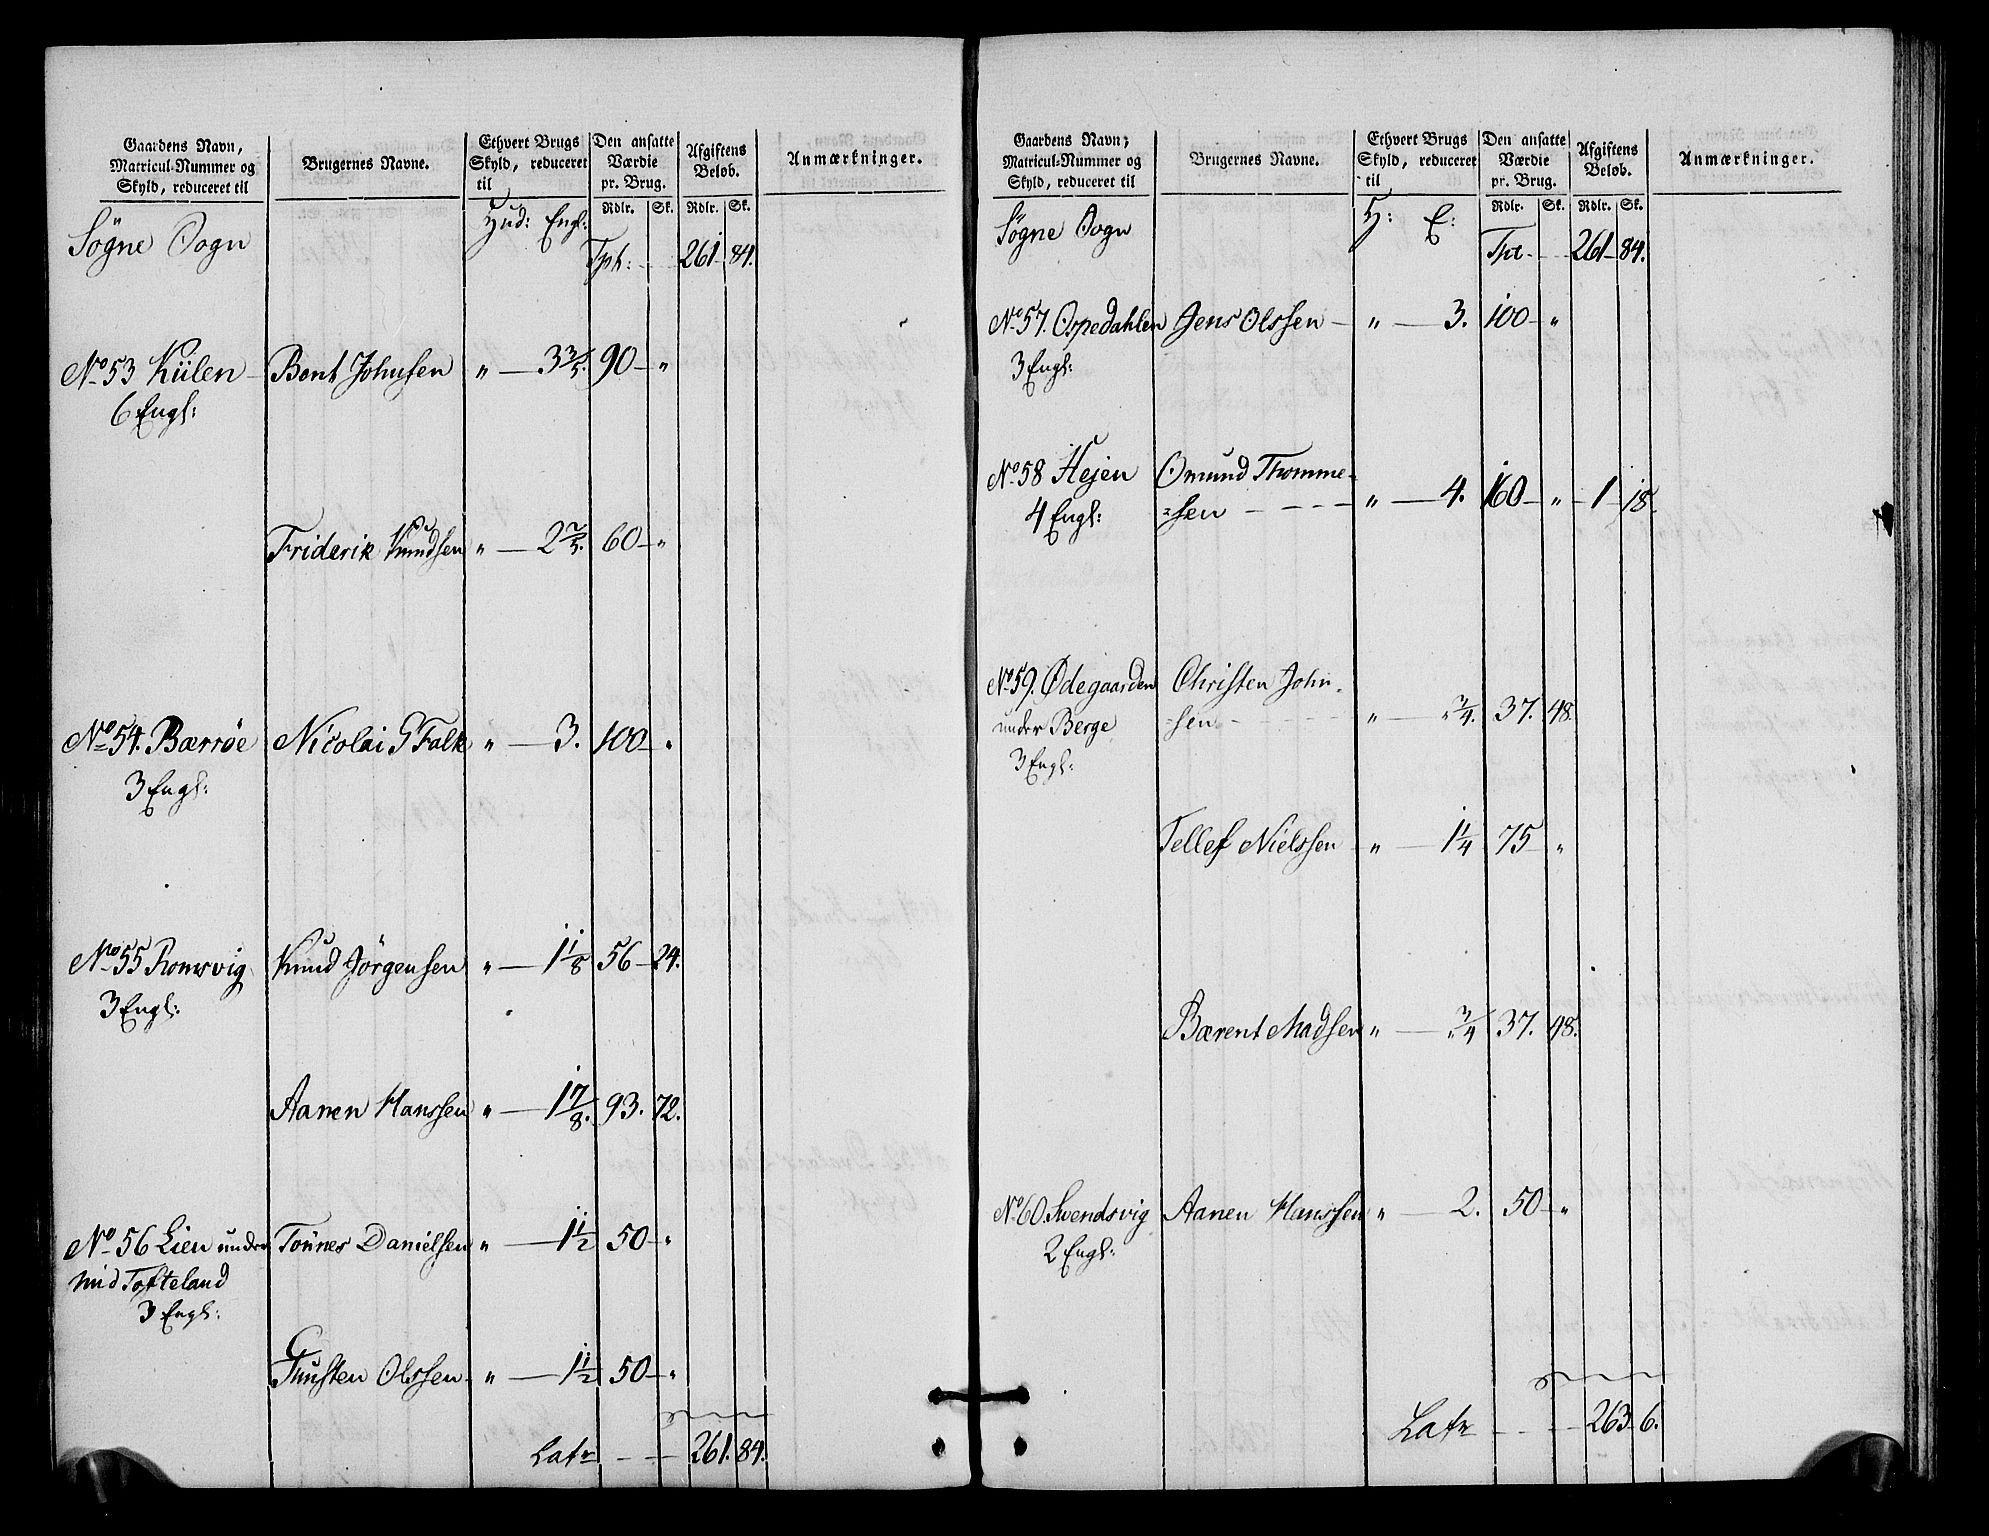 Gaardens Navn, Matricul-Nummer og Skyld, reduceret til | Brugernes Navne. | Ethvert Brugs Skyld, reduceret til | Den ansatte Værdie pr. Brug. | Afgiftens Beløb. | Anmærkninger.
Rdlr. | Sk. | Rdlr. | Sk.
Søgne Sogn | Hud: Engl:
Tpt: - - 261 84.
No 53 Kiilen | Bent Johnsen " 3 3/5. 90 "
6 Engl:
Friderik Knudsen " 2 2/5. 60 "
No 54. Bærrøe | Nicolai G Falk " 3. 100 "
3 Engl:
No 55 Romsvig | Knud Jørgensen " 1 1/8 56 24.
3 Engl:
Aanen Hanssen " 1 7/8. 93. 72.
No 56 Lien under | Tønnes Danielsen " 1 1/2 50 "
mid Tofteland
3 Engl:
Olssen " 1 1/2 50 "
Latr - - 261. 84.
Gaardens Navn, Matricul-Nummer og Skyld, reduceret til | Brugernes Navne. | Ethvert Brugs Skyld, reduceret til | Den ansatte Værdie pr. Brug. | Afgiftens Beløb. | Anmærkninger.
Rdlr. | Sk. | Rdlr. | Sk.
Søgne Sogn | H: E:
Tpt - - 261 84.
No 57. Ospedahlen | Jens Olssen " 3. 100 "
3 Engl:
No 58 Hejen | Omund Thomme-
4 Engl: | =sen - - - " 4. 160 " 1 18.
No 59. Ødegaarden | Christen John-
under Berge | =sen - - - " " 3/4. 37. 48.
3 Engl:
Tellef Nielssen " 1 1/4 75 "
Bærent Madsen " " 3/4 37. 48.
No 60. Svendsvig | Aanen Hanssen " 2. 50 "
2 Engl:
Latr - - - 263 6.